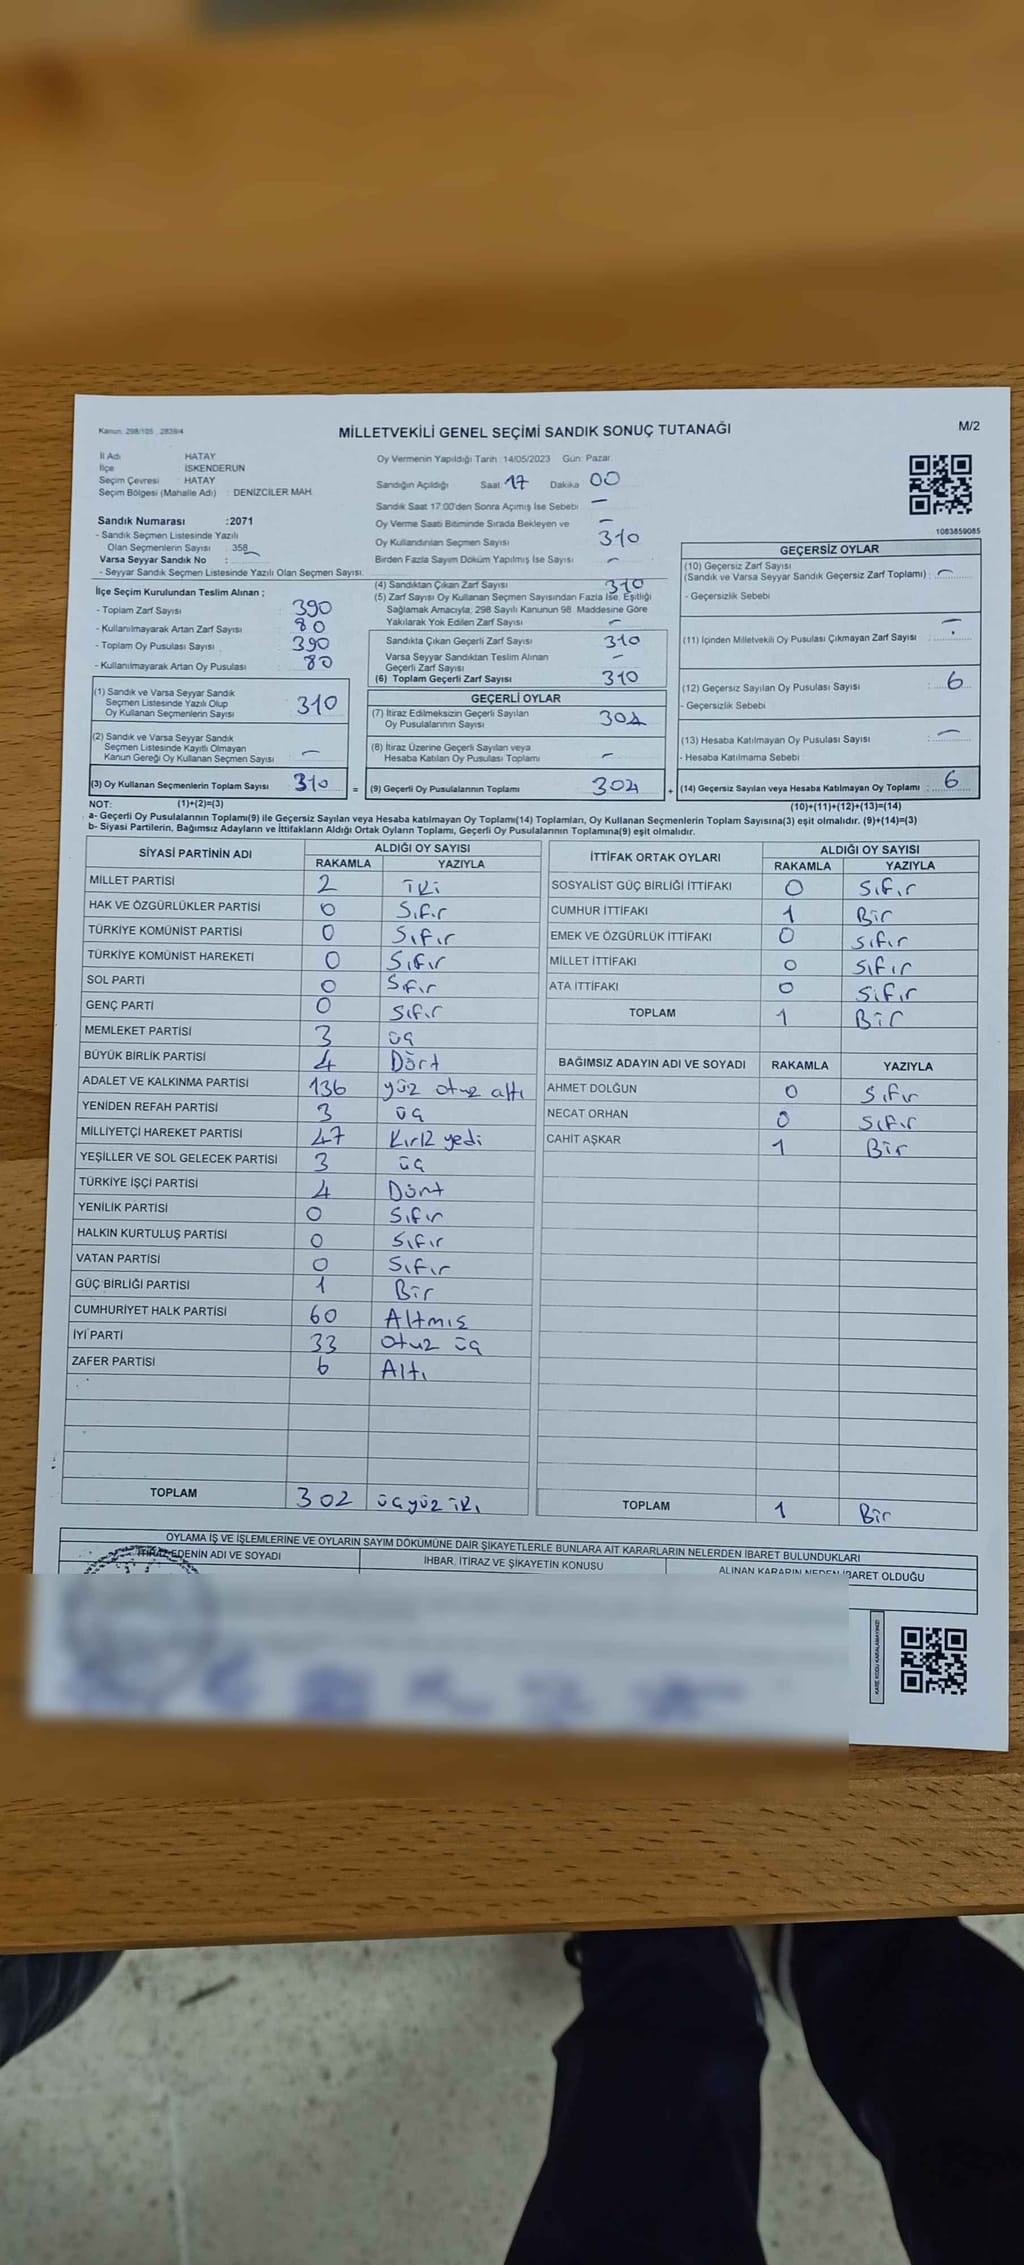 Kanun: 298/105 , 2839/4
MİLLETVEKİLİ GENEL SEÇİMİ SANDIK SONUÇ TUTANAĞI
M/2
İl Adı HATAY
İlçe İSKENDERUN
Seçim Çevresi : HATAY
Seçim Bölgesi (Mahalle Adı) : DENİZCİLER MAH.
Oy Vermenin Yapıldığı Tarih : 14/05/2023 Gün: Pazar
Sandığın Açıldığı Saat 17 Dakika 00
Sandık Saat 17:00'den Sonra Açımış İse Sebebi —
Oy Verme Saati Bitiminde Sırada Bekleyen ve —
Oy Kullandırılan Seçmen Sayısı 310
Birden Fazla Sayım Döküm Yapılmış İse Sayısı —
1083859085
Sandık Numarası :2071
- Sandık Seçmen Listesinde Yazılı
Olan Seçmenlerin Sayısı : 358
Varsa Seyyar Sandık No :
- Seyyar Sandık Seçmen Listesinde Yazılı Olan Seçmen Sayısı:
İlçe Seçim Kurulundan Teslim Alınan ;
- Toplam Zarf Sayısı 390
- Kullanılmayarak Artan Zarf Sayısı 80
- Toplam Oy Pusulası Sayısı 390
- Kullanılmayarak Artan Oy Pusulası 80
(1) Sandık ve Varsa Seyyar Sandık
Seçmen Listesinde Yazılı Olup
Oy Kullanan Seçmenlerin Sayısı 310
(2) Sandık ve Varsa Seyyar Sandık
Seçmen Listesinde Kayıtlı Olmayan
Kanun Gereği Oy Kullanan Seçmen Sayısı —
(3) Oy Kullanan Seçmenlerin Toplam Sayısı 310 =
(4) Sandıktan Çıkan Zarf Sayısı 310
(5) Zarf Sayısı Oy Kullanan Seçmen Sayısından Fazla İse, Eşitliği
Sağlamak Amacıyla; 298 Sayılı Kanunun 98. Maddesine Göre
Yakılarak Yok Edilen Zarf Sayısı —
Sandıkta Çıkan Geçerli Zarf Sayısı 310
Varsa Seyyar Sandıktan Teslim Alınan
Geçerli Zarf Sayısı —
(6) Toplam Geçerli Zarf Sayısı 310
GEÇERLİ OYLAR
(7) İtiraz Edilmeksizin Geçerli Sayılan
Oy Pusulalarının Sayısı 304
(8) İtiraz Üzerine Geçerli Sayılan veya
Hesaba Katılan Oy Pusulası Toplamı —
(9) Geçerli Oy Pusulalarının Toplamı 304 +
GEÇERSİZ OYLAR
(10) Geçersiz Zarf Sayısı
(Sandık ve Varsa Seyyar Sandık Geçersiz Zarf Toplamı) : —
- Geçersizlik Sebebi
(11) İçinden Milletvekili Oy Pusulası Çıkmayan Zarf Sayısı : —
(12) Geçersiz Sayılan Oy Pusulası Sayısı : 6
- Geçersizlik Sebebi
(13) Hesaba Katılmayan Oy Pusulası Sayısı : —
- Hesaba Katılmama Sebebi
(14) Geçersiz Sayılan veya Hesaba Katılmayan Oy Toplamı : 6
NOT: (1)+(2)=(3)
(10)+(11)+(12)+(13)=(14)
a- Geçerli Oy Pusulalarının Toplamı(9) ile Geçersiz Sayılan veya Hesaba katılmayan Oy Toplamı(14) Toplamları, Oy Kullanan Seçmenlerin Toplam Sayısına(3) eşit olmalıdır. (9)+(14)=(3)
b- Siyasi Partilerin, Bağımsız Adayların ve İttifakların Aldığı Ortak Oyların Toplamı, Geçerli Oy Pusulalarının Toplamına(9) eşit olmalıdır.
SİYASİ PARTİNİN ADI ALDIĞI OY SAYISI
RAKAMLA YAZIYLA
MİLLET PARTİSİ 2 iki
HAK VE ÖZGÜRLÜKLER PARTİSİ 0 Sıfır
TÜRKİYE KOMÜNİST PARTİSİ 0 Sıfır
TÜRKİYE KOMÜNİST HAREKETİ 0 Sıfır
SOL PARTİ 0 Sıfır
GENÇ PARTİ 0 Sıfır
MEMLEKET PARTİSİ 3 üç
BÜYÜK BİRLİK PARTİSİ 4 Dört
ADALET VE KALKINMA PARTİSİ 136 yüz otuz altı
YENİDEN REFAH PARTİSİ 3 üç
MİLLİYETÇİ HAREKET PARTİSİ 47 Kırk yedi
YEŞİLLER VE SOL GELECEK PARTİSİ 3 üç
TÜRKİYE İŞÇİ PARTİSİ 4 Dört
YENİLİK PARTİSİ 0 Sıfır
HALKIN KURTULUŞ PARTİSİ 0 Sıfır
VATAN PARTİSİ 0 Sıfır
GÜÇ BİRLİĞİ PARTİSİ 1 Bir
CUMHURİYET HALK PARTİSİ 60 Altmış
İYİ PARTİ 33 otuz üç
ZAFER PARTİSİ 6 Altı
TOPLAM 302 üçyüz iki
İTTİFAK ORTAK OYLARI ALDIĞI OY SAYISI
RAKAMLA YAZIYLA
SOSYALİST GÜÇ BİRLİĞİ İTTİFAKI 0 Sıfır
CUMHUR İTTİFAKI 1 Bir
EMEK VE ÖZGÜRLÜK İTTİFAKI 0 Sıfır
MİLLET İTTİFAKI 0 Sıfır
ATA İTTİFAKI 0 Sıfır
TOPLAM 1 Bir
BAĞIMSIZ ADAYIN ADI VE SOYADI RAKAMLA YAZIYLA
AHMET DOLĞUN 0 Sıfır
NECAT ORHAN 0 Sıfır
CAHİT AŞKAR 1 Bir
TOPLAM 1 Bir
OYLAMA İŞ VE İŞLEMLERİNE VE OYLARIN SAYIM DÖKÜMÜNE DAİR ŞİKAYETLERLE BUNLARA AİT KARARLARIN NELERDEN İBARET BULUNDUKLARI
İTİRAZ EDENİN ADI VE SOYADI İHBAR, İTİRAZ VE ŞİKAYETİN KONUSU ALINAN KARARIN NEDEN İBARET OLDUĞU
KARE KODU KARALAMAYINIZ!